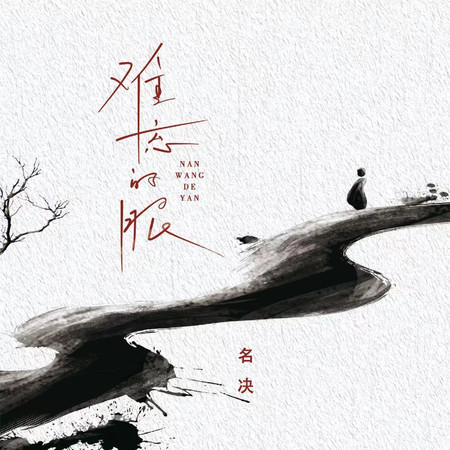 难忘的眼
NAN
WANG
DE
YAN
名决